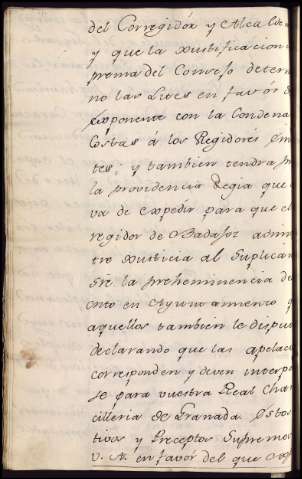 del Corregidór y Alcalde
y que la Justificacion
prema del Consejo deter
no las Lites en favór d
exponente con la Condena
Costas á los Regidores
tes; y tambien tendra
la providencia Regia que
va de expedir para que el
regidor de Badajoz admi
tre Justicia al Suplican
sre la prehemiencia de
en Ayuntamiento
aquellos tambien le dispu
declarando que las apelac
corresponden y deven interpo
se para vuestra Real Chan
cilleria de Granada. Estos
tivos y Preceptos Supremos
V. A. en favor del que